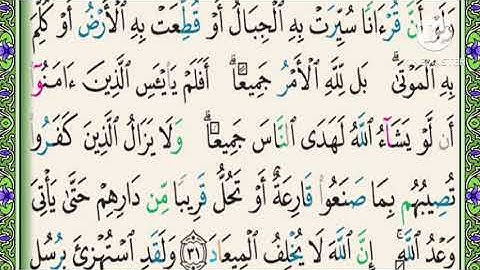 وَلَوْ أَنَّ قُرْءَانًا سُيِّرَتْ بِهِ الْجِبَالُ أَوْ قُطِّعَتْ بِهِ الْأَرْضُ أَوْ كُلِّمَ
بِهِ الْمَوْتَىٰ ۗ بَل لِّلَّهِ الْأَمْرُ جَمِيعًا ۗ أَفَلَمْ يَا۟يْـَٔسِ الَّذِينَ ءَامَنُوٓا۟
أَن لَّوْ يَشَآءُ اللَّهُ لَهَدَى النَّاسَ جَمِيعًا ۗ وَلَا يَزَالُ الَّذِينَ كَفَرُوا۟
تُصِيبُهُم بِمَا صَنَعُوا۟ قَارِعَةٌ أَوْ تَحُلُّ قَرِيبًا مِّن دَارِهِمْ حَتَّىٰ يَأْتِىَ
وَعْدُ اللَّهِ ۚ إِنَّ اللَّهَ لَا يُخْلِفُ الْمِيعَادَ ٣١ وَلَقَدِ اسْتُهْزِئَ بِرُسُلٍ